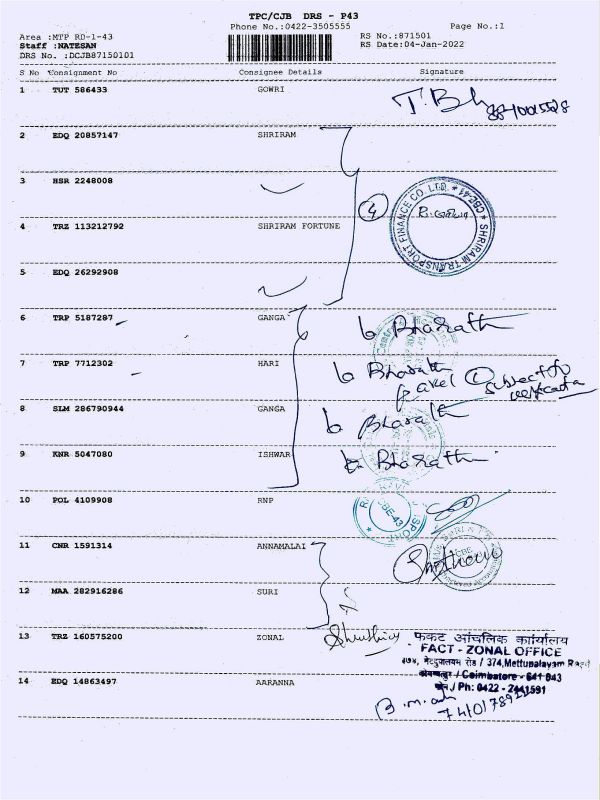 TPC/CJB DRS - P43
Phone No.:0422-3505555 Page No.:1
Area :MTP RD-1-43 RS No.:871501
Staff :NATESAN RS Date:04-Jan-2022
DRS No. :DCJB87150101
S No Consignment No Consignee Details Signature
1 TUT 586433 GOWRI
T.Bh
2 EDQ 20857147 SHRIRAM
3 HSR 2248008
4 TRZ 113212792 SHRIRAM FORTUNE
4
SHRIRAM TRANSPORT FINANCE CO. LTD. * CBE-41 *
5 EDQ 26292908
6 TRP 5187287 GANGA Bharath
7 TRP 7712302 HARI Bharath
8 SLM 286790944 GANGA Bharath
9 KNR 5047080 ISHWAR Bharath
10 POL 4109908 RNP
CBE-43
11 CNR 1591314 ANNAMALAI
CBE
12 MAA 282916286 SURI
13 TRZ 160575200 ZONAL
आंचलिक कार्यालय
FACT - ZONAL OFFICE
374, Mettupalayam Road
Coimbatore - 641 043
Ph: 0422 - 2441591
14 EDQ 14863497 AARANNA